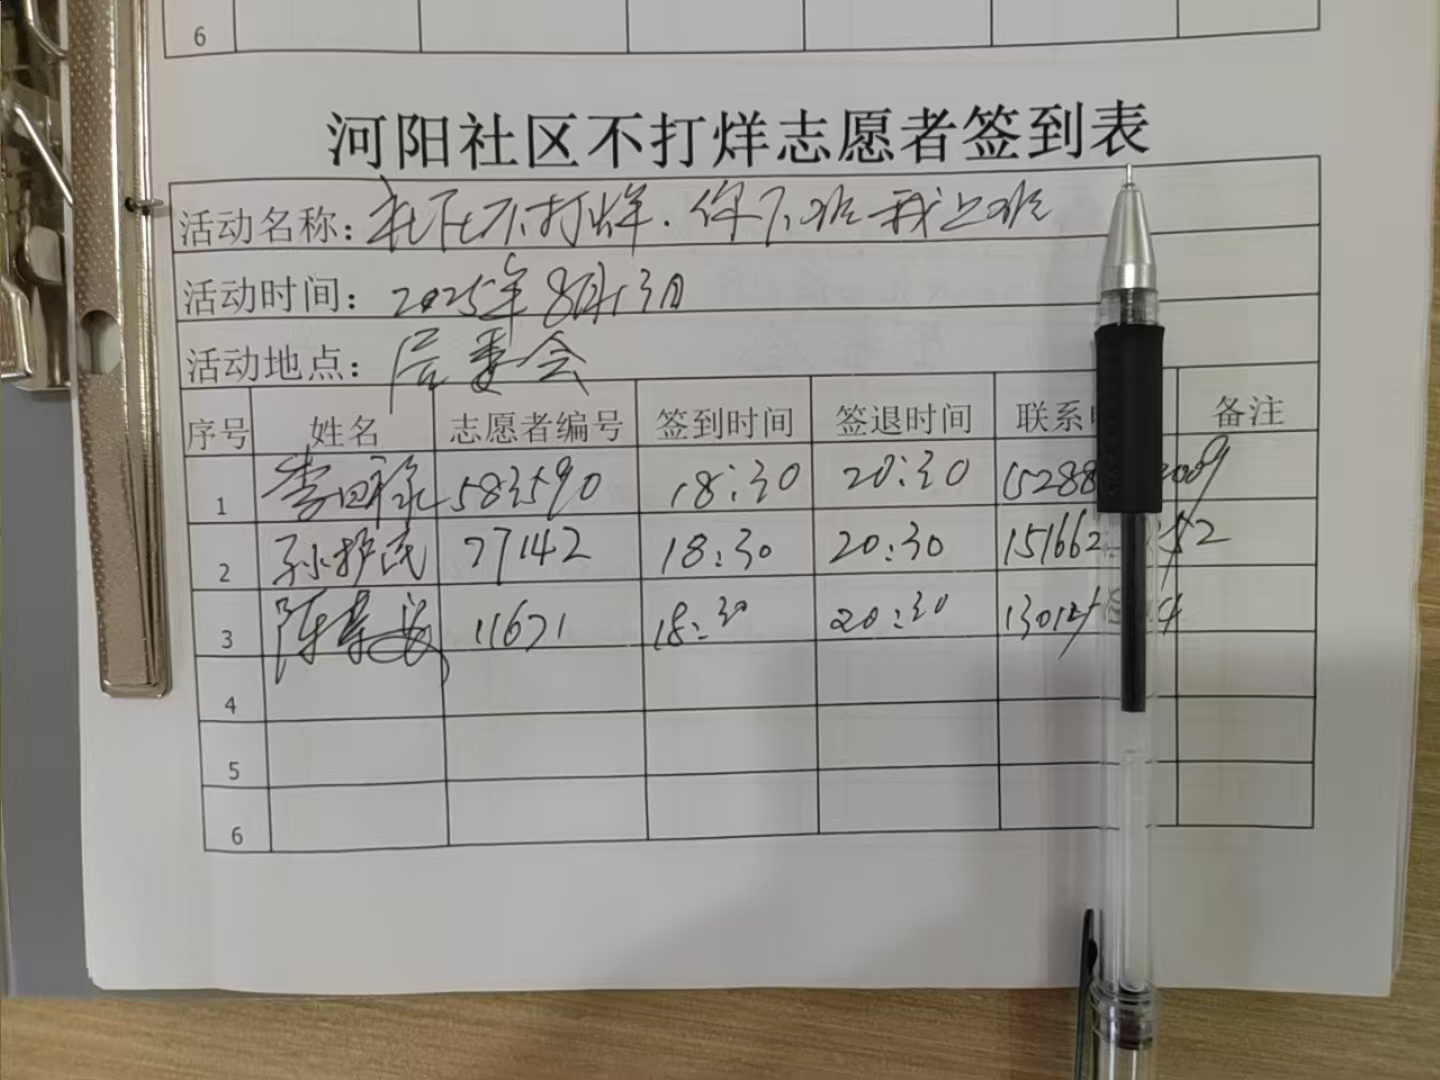 6
河阳社区不打烊志愿者签到表
活动名称: 社区不打烊.你下班我上班
活动时间: 2025年8月13日
活动地点: 居委会
序号 姓名 志愿者编号 签到时间 签退时间 联系 备注
1 李 583590 18:30 20:30 15288 009
2 孙护民 77142 18:30 20:30 151662 52
3 陈 11671 18:30 20:30 13012 4
4
5
6